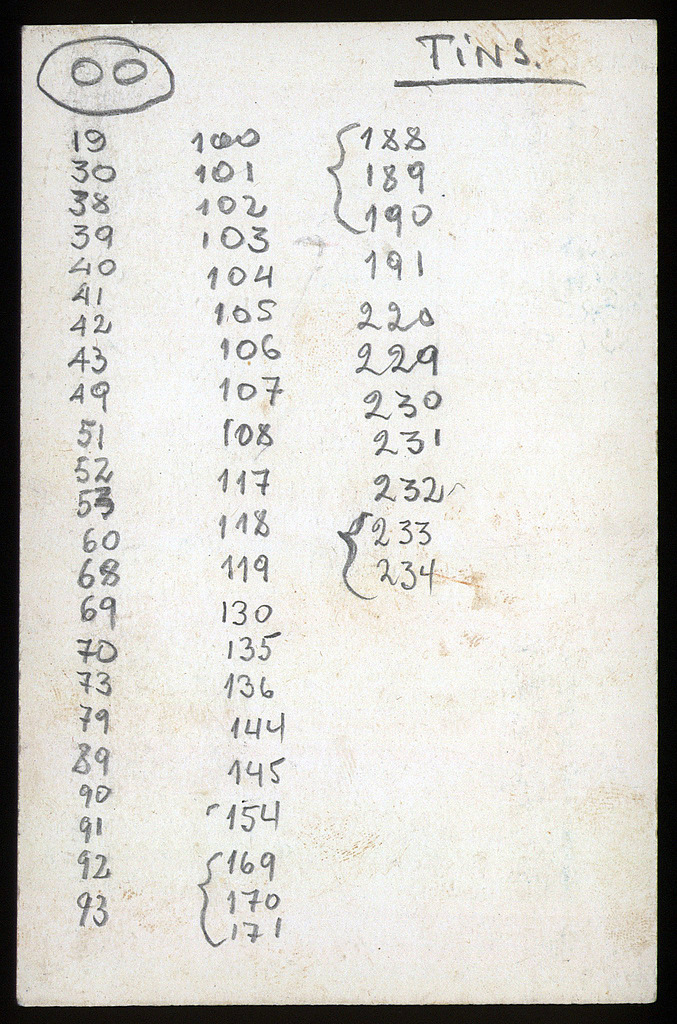 00
TiNS.
19
30
38
39
40
41
42
43
49
51
52
53
60
68
69
70
73
79
89
90
91
92
93
100
101
102
103
104
105
106
107
108
117
118
119
130
135
136
144
145
154
169
170
171
188
189
190
191
220
229
230
231
232
233
234